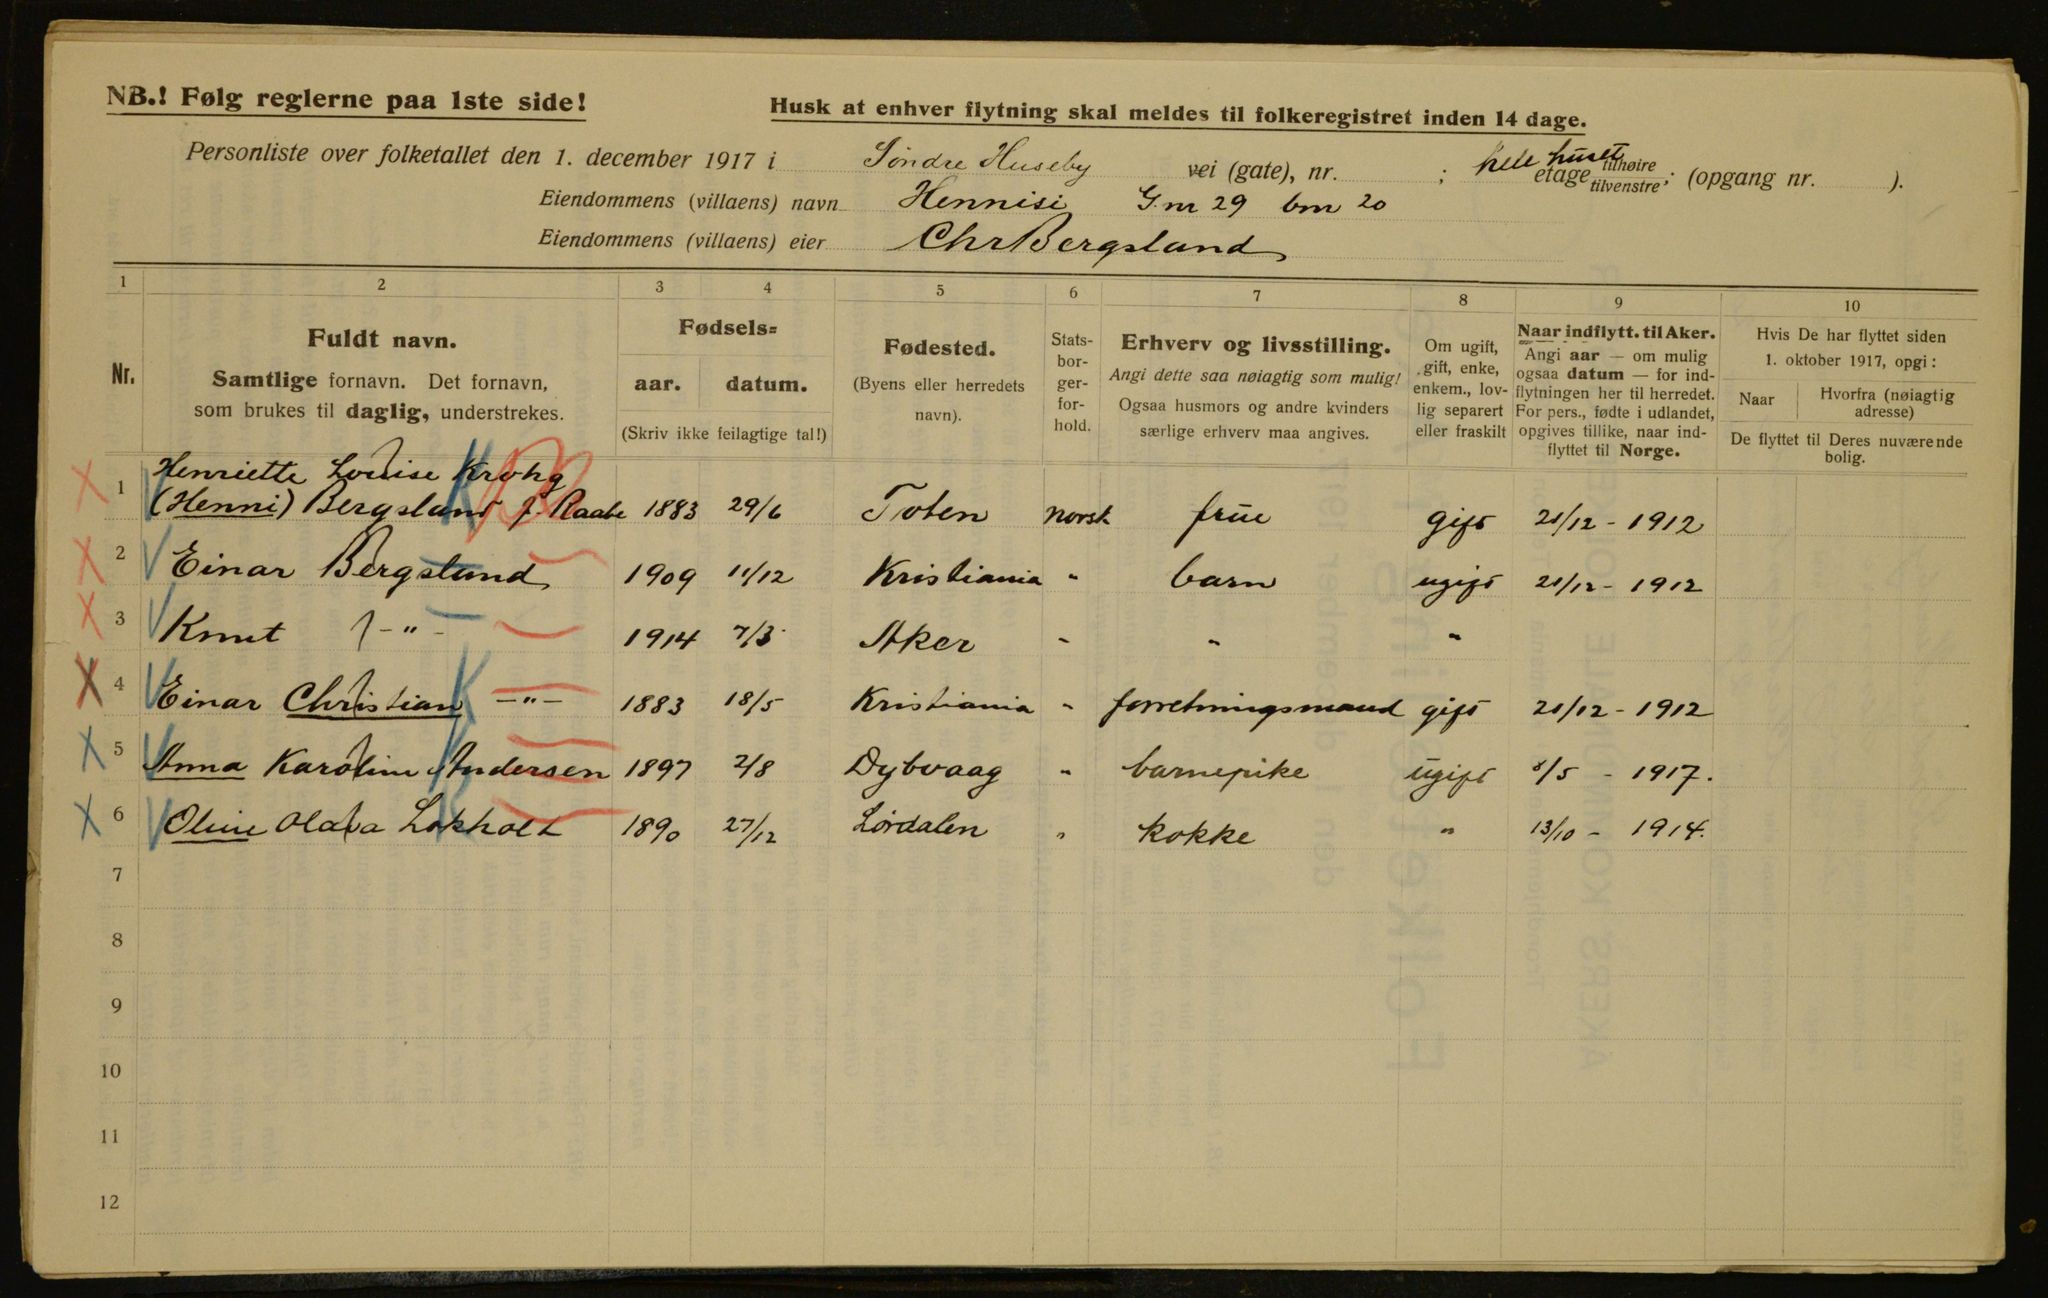 NB.! Følg reglerne paa 1ste side!
Husk at enhver flytning skal meldes til folkeregistret inden 14 dage.
Personliste over folketallet den 1. december 1917 i Søndre Huseby vei (gate), nr. ; hele huset etage tilhøire tilvenstre; (opgang nr. ).
Eiendommens (villaens) navn Hennisi Gnr 29 bnr 20
Eiendommens (villaens) eier Chr Bergsland
1 2 3 4 5 6 7 8 9 10
Nr.
Fuldt navn.
Samtlige fornavn. Det fornavn,
som brukes til daglig, understrekes.
Fødsels=
aar. datum.
(Skriv ikke feilagtige tal!)
Fødested.
(Byens eller herredets
navn).
Stats-
bor-
ger-
for-
hold.
Erhverv og livsstilling.
Angi dette saa nøiagtig som mulig!
Ogsaa husmors og andre kvinders
særlige erhverv maa angives.
Om ugift,
gift, enke,
enkem., lov-
lig separert
eller fraskilt
Naar indflytt. til Aker.
Angi aar — om mulig
ogsaa datum — for ind-
flytningen her til herredet.
For pers., fødte i utlandet,
opgives tillike, naar ind-
flyttet til Norge.
Hvis De har flyttet siden
1. oktober 1917, opgi:
Naar
Hvorfra (nøiagtig
adresse)
De flyttet til Deres nuværende
bolig.
Henriette Louise Krohg
1 (Henni) Bergsland f. Raabe 1883 29/6 Toten norsk frue gift 21/12 - 1912
2 Einar Bergsland 1909 11/12 Kristiania " barn ugift 21/12 - 1912
3 Knut - " - 1914 7/3 Aker " " "
4 Einar Christian - " - 1883 18/5 Kristiania " forretningsmand gift 21/12 - 1912
5 Anna Karoline Andersen 1897 2/8 Dybvaag " barnepike ugift 8/5 - 1917.
6 Oline Olava Lokholt 1890 27/12 Lørdalen " kokke " 13/10 - 1914.
7
8
9
10
11
12